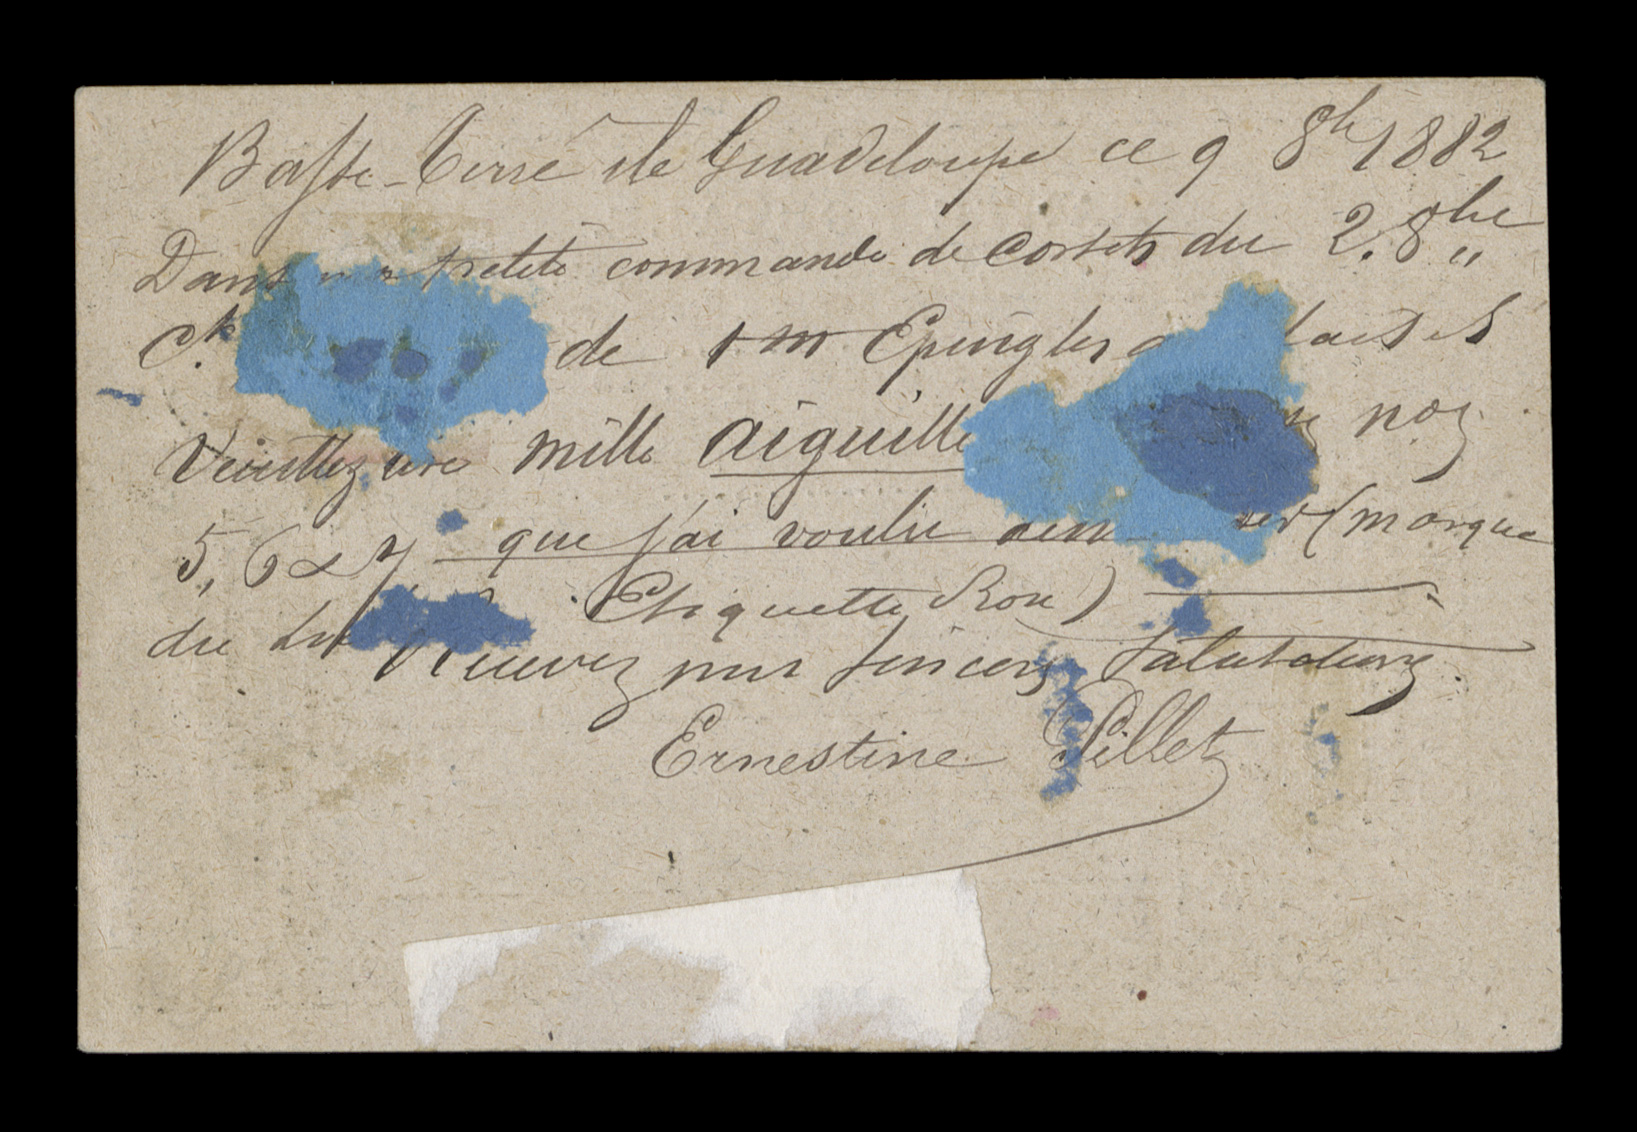 Basse-Terre île Guadeloupe ce 9 8bre 1882
Dans ma petite commande de corsets du 2. 8bre
ct. de 1 m Epingles
Veuillez lire mille aiguille nos
5, 6 & 7 que j'ai voulu (marque
du Etiquette Rose)
Recevez mes sincères salutations.
Ernestine Pillet